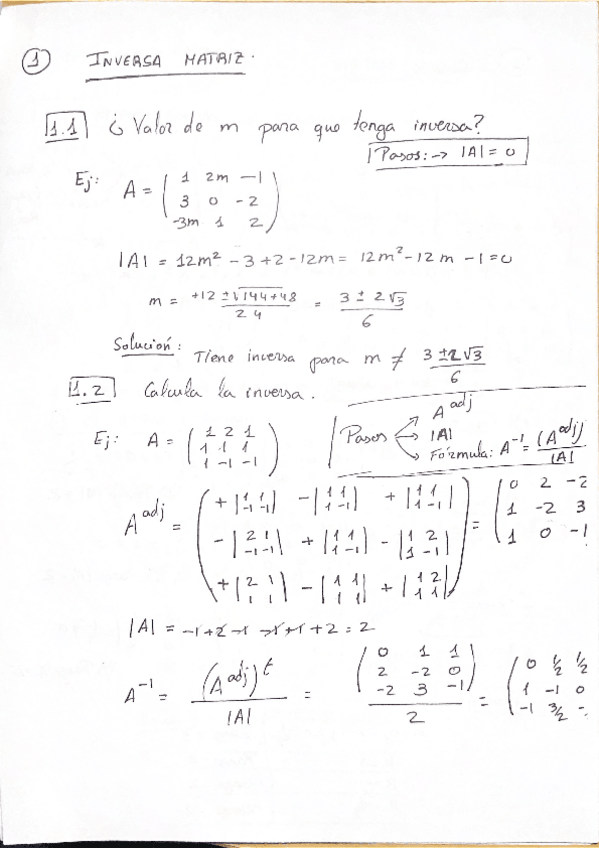 1 INVERSA MATRIZ.
1.1 ¿Valor de m para que tenga inversa?
Pasos: → |A| = 0
Ej: A = ( 1 2m -1
3 0 -2
-3m 1 2 )
|A| = 12m² - 3 + 2 - 12m = 12m² - 12m - 1 = 0
m = +12 ± √144+48 / 24 = 3 ± 2√3 / 6
Solución: Tiene inversa para m ≠ 3 ± 2√3 / 6
1.2 Calcula la inversa.
Pasos → A^adj
→ |A|
→ Fórmula: A^-1 = (A^adj) / |A|
Ej: A = ( 1 2 1
1 1 1
1 -1 -1 )
A^adj = ( + |1 1 -1 -1| - |1 1 1 -1| + |1 1 1 -1| = ( 0 2 -2
- |2 1 -1 -1| + |1 1 1 -1| - |1 2 1 -1| 1 -2 3
+ |2 1 1 1| - |1 1 1 1| + |1 2 1 1| ) 1 0 -1
|A| = -1 + 2 - 1 - 1 + 1 + 2 = 2
A^-1 = (A^adj)^t / |A| = ( 0 1 1
2 -2 0
-2 3 -1 ) / 2 = ( 0 1/2 1/2
1 -1 0
-1 3/2 -